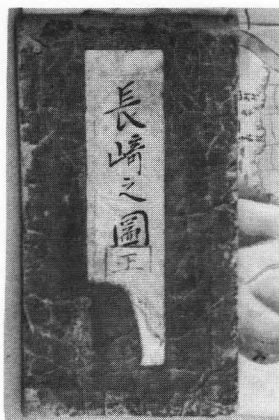 長崎之圖